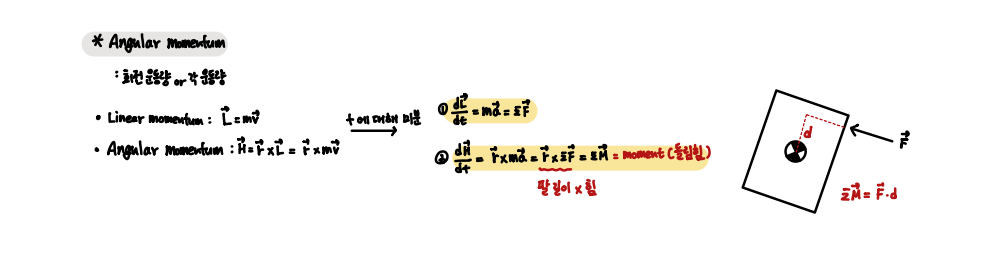 * Angular momentum
: 회전 운동량 or 각 운동량
• Linear momentum : L⃗ = mv⃗
• Angular Momentum : H⃗ = r⃗ × L⃗ = r⃗ × mv⃗
t에 대해 미분
① dL⃗/dt = ma⃗ = ΣF⃗
② dH⃗/dt = r⃗ × ma⃗ = r⃗ × ΣF⃗ = ΣM⃗ = moment (돌림힘)
팔길이 × 힘
d
F⃗
ΣM⃗ = F⃗ · d